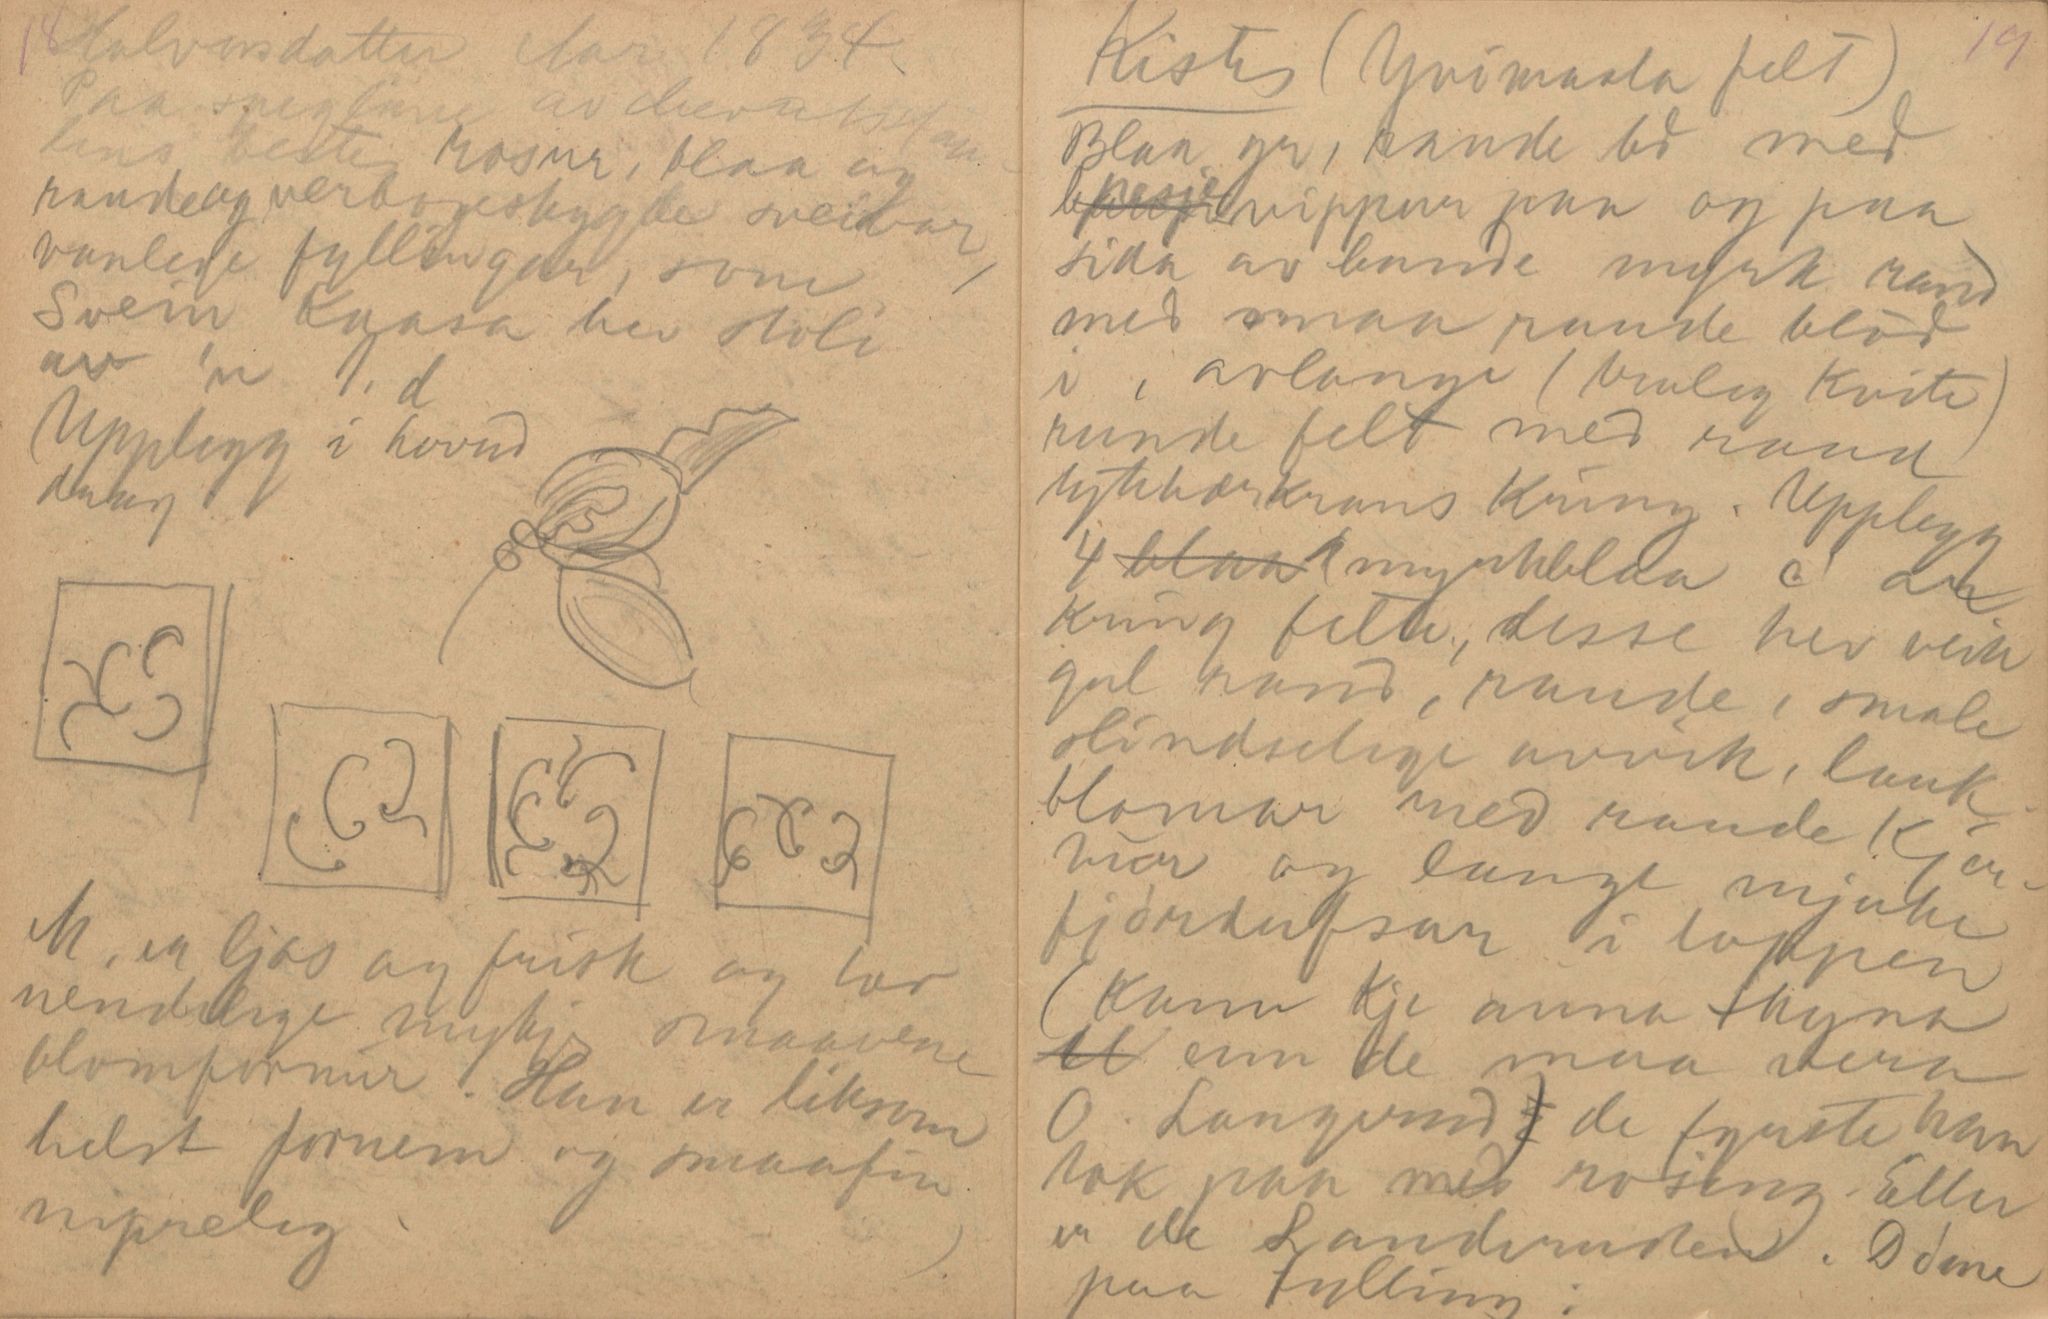 18
Halvorsdatter Aar 1834.
Paa speglane av
beste rosur, blaa og
raude og verbogeskygde sveivar,
vanlege fyllingar, som
Svein Kyasa hev stoli
av 'n
(Upplegg i hovud
drag
M. er ljos og frisk og hev
nendelege mykje smaavene
blomformur. Han er liksom
helst fornem og smaafin
niprelig.
)
19
Kiste (Yvimaala felt)
Blaa gr, raude bd med
vippur paa og paa
sida av bande myrk rand
med smaa raude blod
i, avlange (truleg kvite)
runde felt med raud
tytebærkrans kring. Upplegg
4 blaa myrkblaa c'
kring felte, desse hev veik
gul rand, raude, smale
slindselege avvik, lauk-
blomar med raude kjer-
nur og lange mjuke
fjordufsar i toppen
(Kann kje anna skyna
enn de maa vera
O. Langerud) de fyrste han
tok paa med rosing. Eller
er de Sanderuden. Döme
paa fylling: